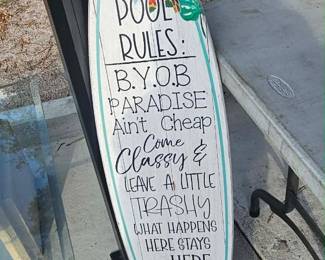 POOL
RULES:
B.Y.O.B
PARADISE
Ain't Cheap
Come
Classy &
LEAVE A LITTLE
TRASHY
WHAT HAPPENS
HERE STAYS
HERE